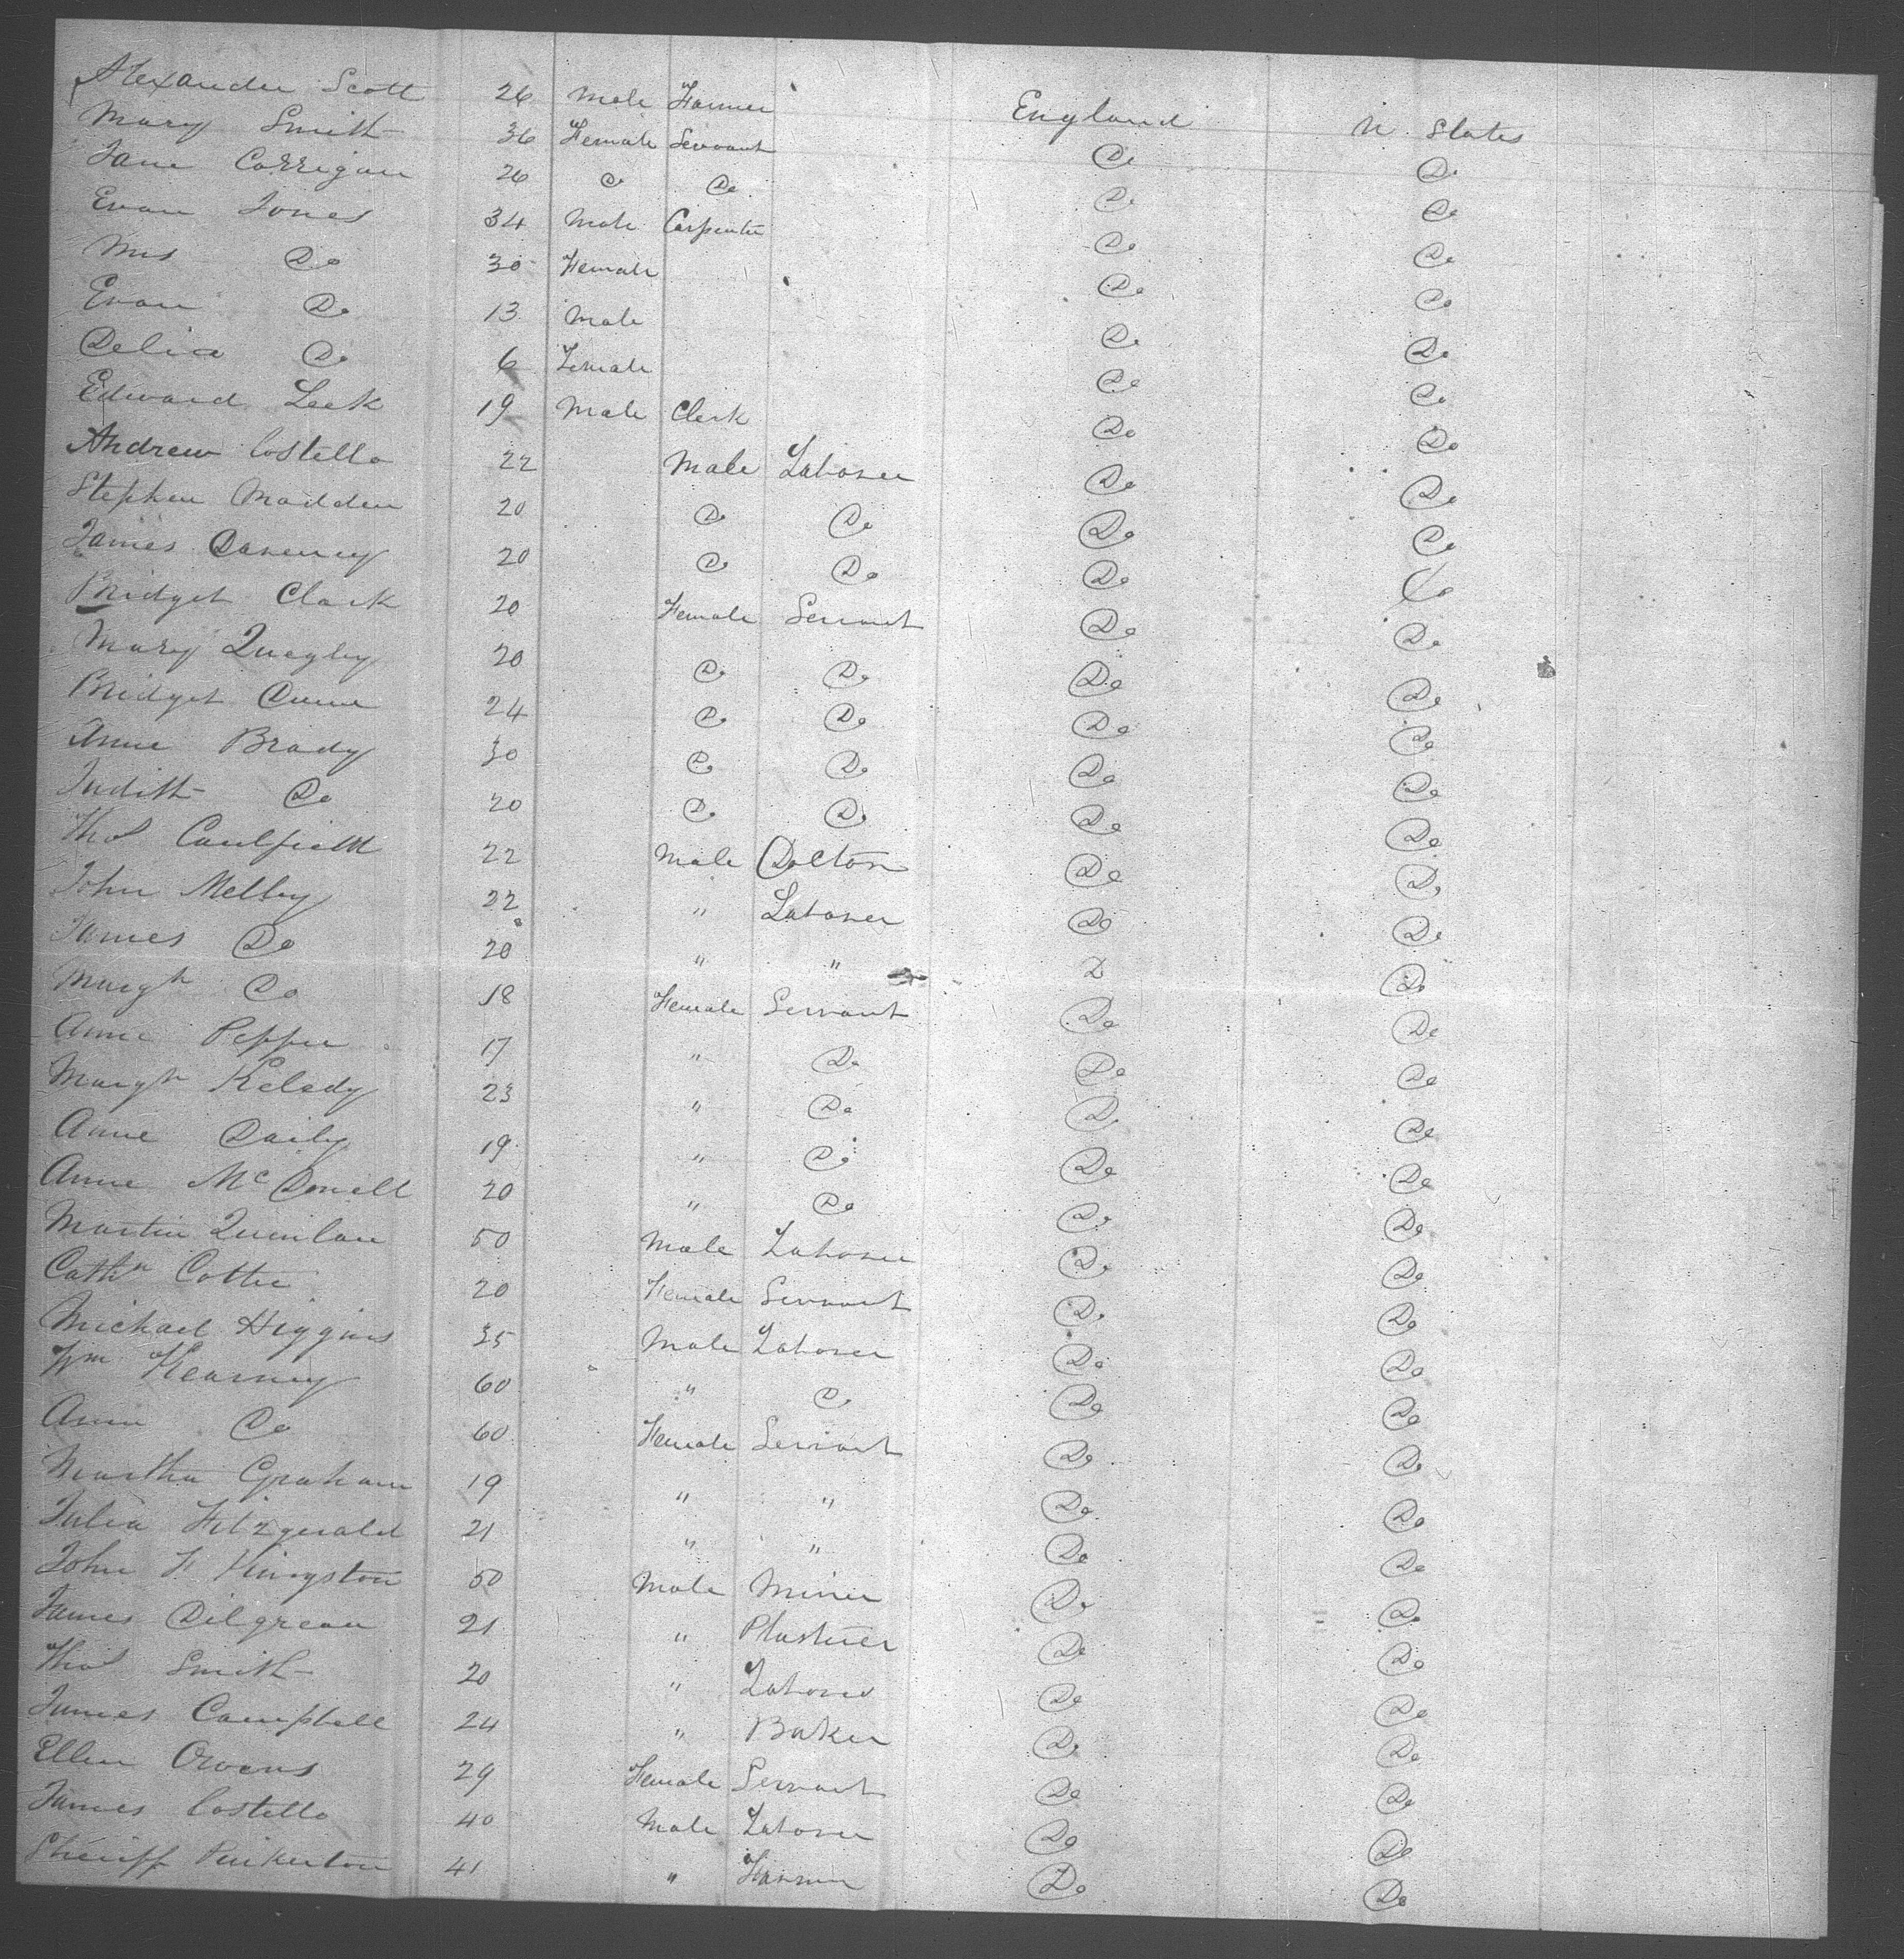 Alexander Scott 26 Male Farmer England U States
Mary Smith 36 Female Servant Do Do
Jane Corrigan 26 Do Do Do Do
Evan Jones 34 Male Carpenter Do Do
Mrs Do 30 Female Do Do
Evan Do 13 Male Do Do
Delia Do 6 Female Do Do
Edward Leek 19 Male Clerk Do Do
Andrew Costello 22 Male Laborer Do Do
Stephen Madden 20 Do Do Do Do
James Daveney 20 Do Do Do Do
Bridget Clark 20 Female Servant Do Do
Mary Quegley 20 Do Do Do Do
Bridget Dunn 24 Do Do Do Do
Anne Brady 30 Do Do Do Do
Judith Do 20 Do Do Do Do
Thos Caulfield 22 Male Do Do
John Melby 22 " Laborer Do Do
James Do 20 " " D Do
Margt Do 18 Female Servant Do Do
Anne Pepper 17 " Do Do Do
Margt 23 " Do Do Do
Anne Daily 19 " Do Do Do
Anne McDonell 20 " Do Do Do
Martin Quinlan 50 Male Laborer Do Do
Cathn Cotter 20 Female Servant Do Do
Michael Higgins 35 Male Laborer Do Do
Wm Kearney 60 " Do Do Do
Ann Do 60 Female Servant Do Do
Martha Graham 19 " " Do Do
Julia Fitzgerald 21 " " Do Do
John F Kingston 50 Male Miner Do Do
James Dilgrean 21 " Plasterer Do Do
Thos Smith 20 " Laborer Do Do
James Campbell 24 " Baker Do Do
Ellen Owens 29 Female Servant Do Do
James Costello 40 Male Laborer Do Do
Sheriff Pinkerton 41 " Farmer Do Do